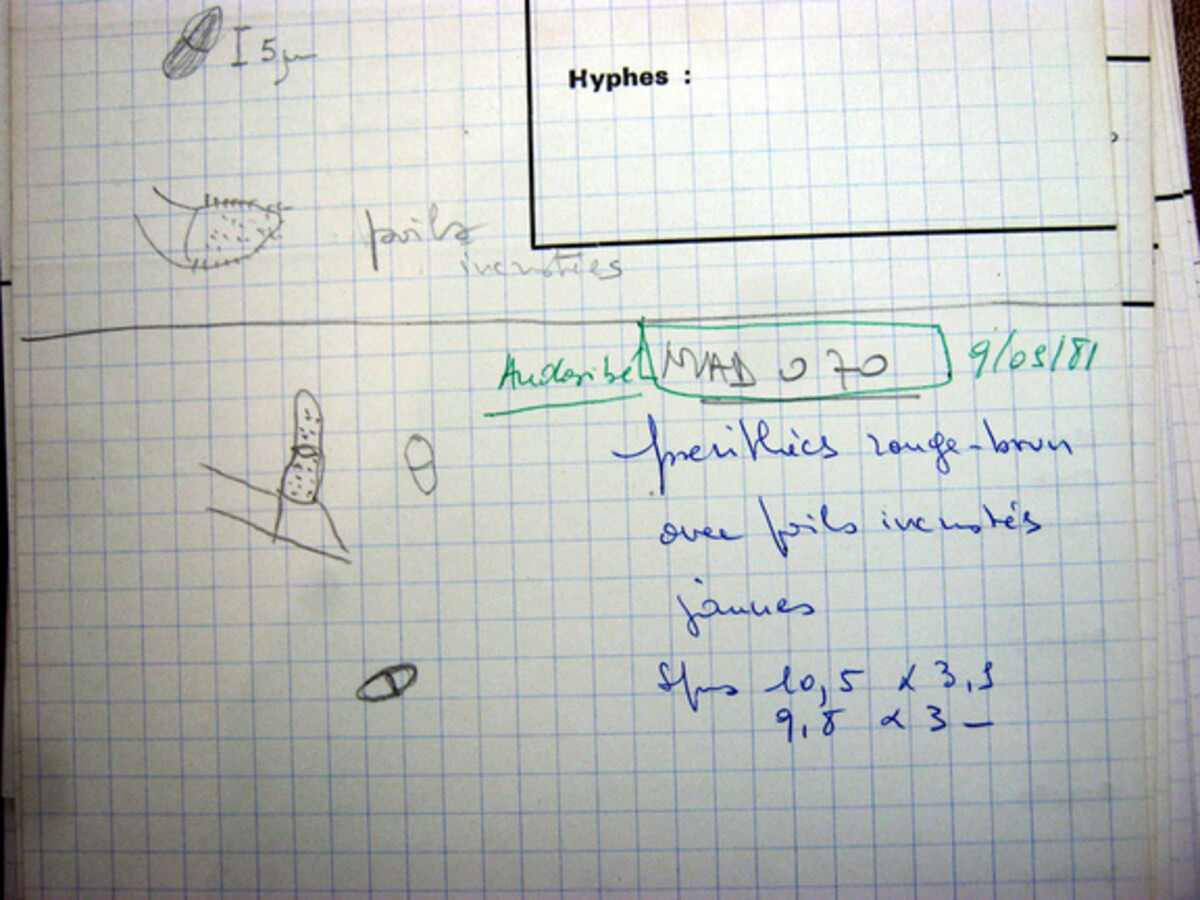 I 5 µm
Hyphes :
poils
incrustés
Andasibe MAD 070 9/03/81
perithèces rouge-brun
avec poils incrustés
jaunes
Spores 10,5 x 3,5
9,8 x 3 —